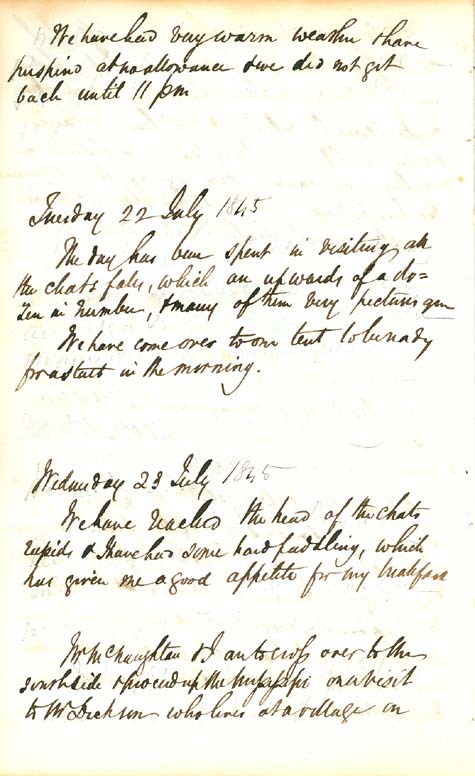 We have had very warm weather & have
perspired at no allowance & we did not get
back until 11 pm
Tuesday 22 July 1845
The day has been spent in visiting all
the chats falls, which are upwards of a do=
zen in number, & many of them very picturesque
We have come over to our tent to be ready
for a start in the morning.
Wednesday 23 July 1845
We have reached the head of the chats
rapids & I have had some hard paddling, which
has given me a good appetite for my breakfast
Mr McNaughton & I are to cross over to the
south side & proceed up the Mississippi on a visit
to Mr Dickson who lives at a village on